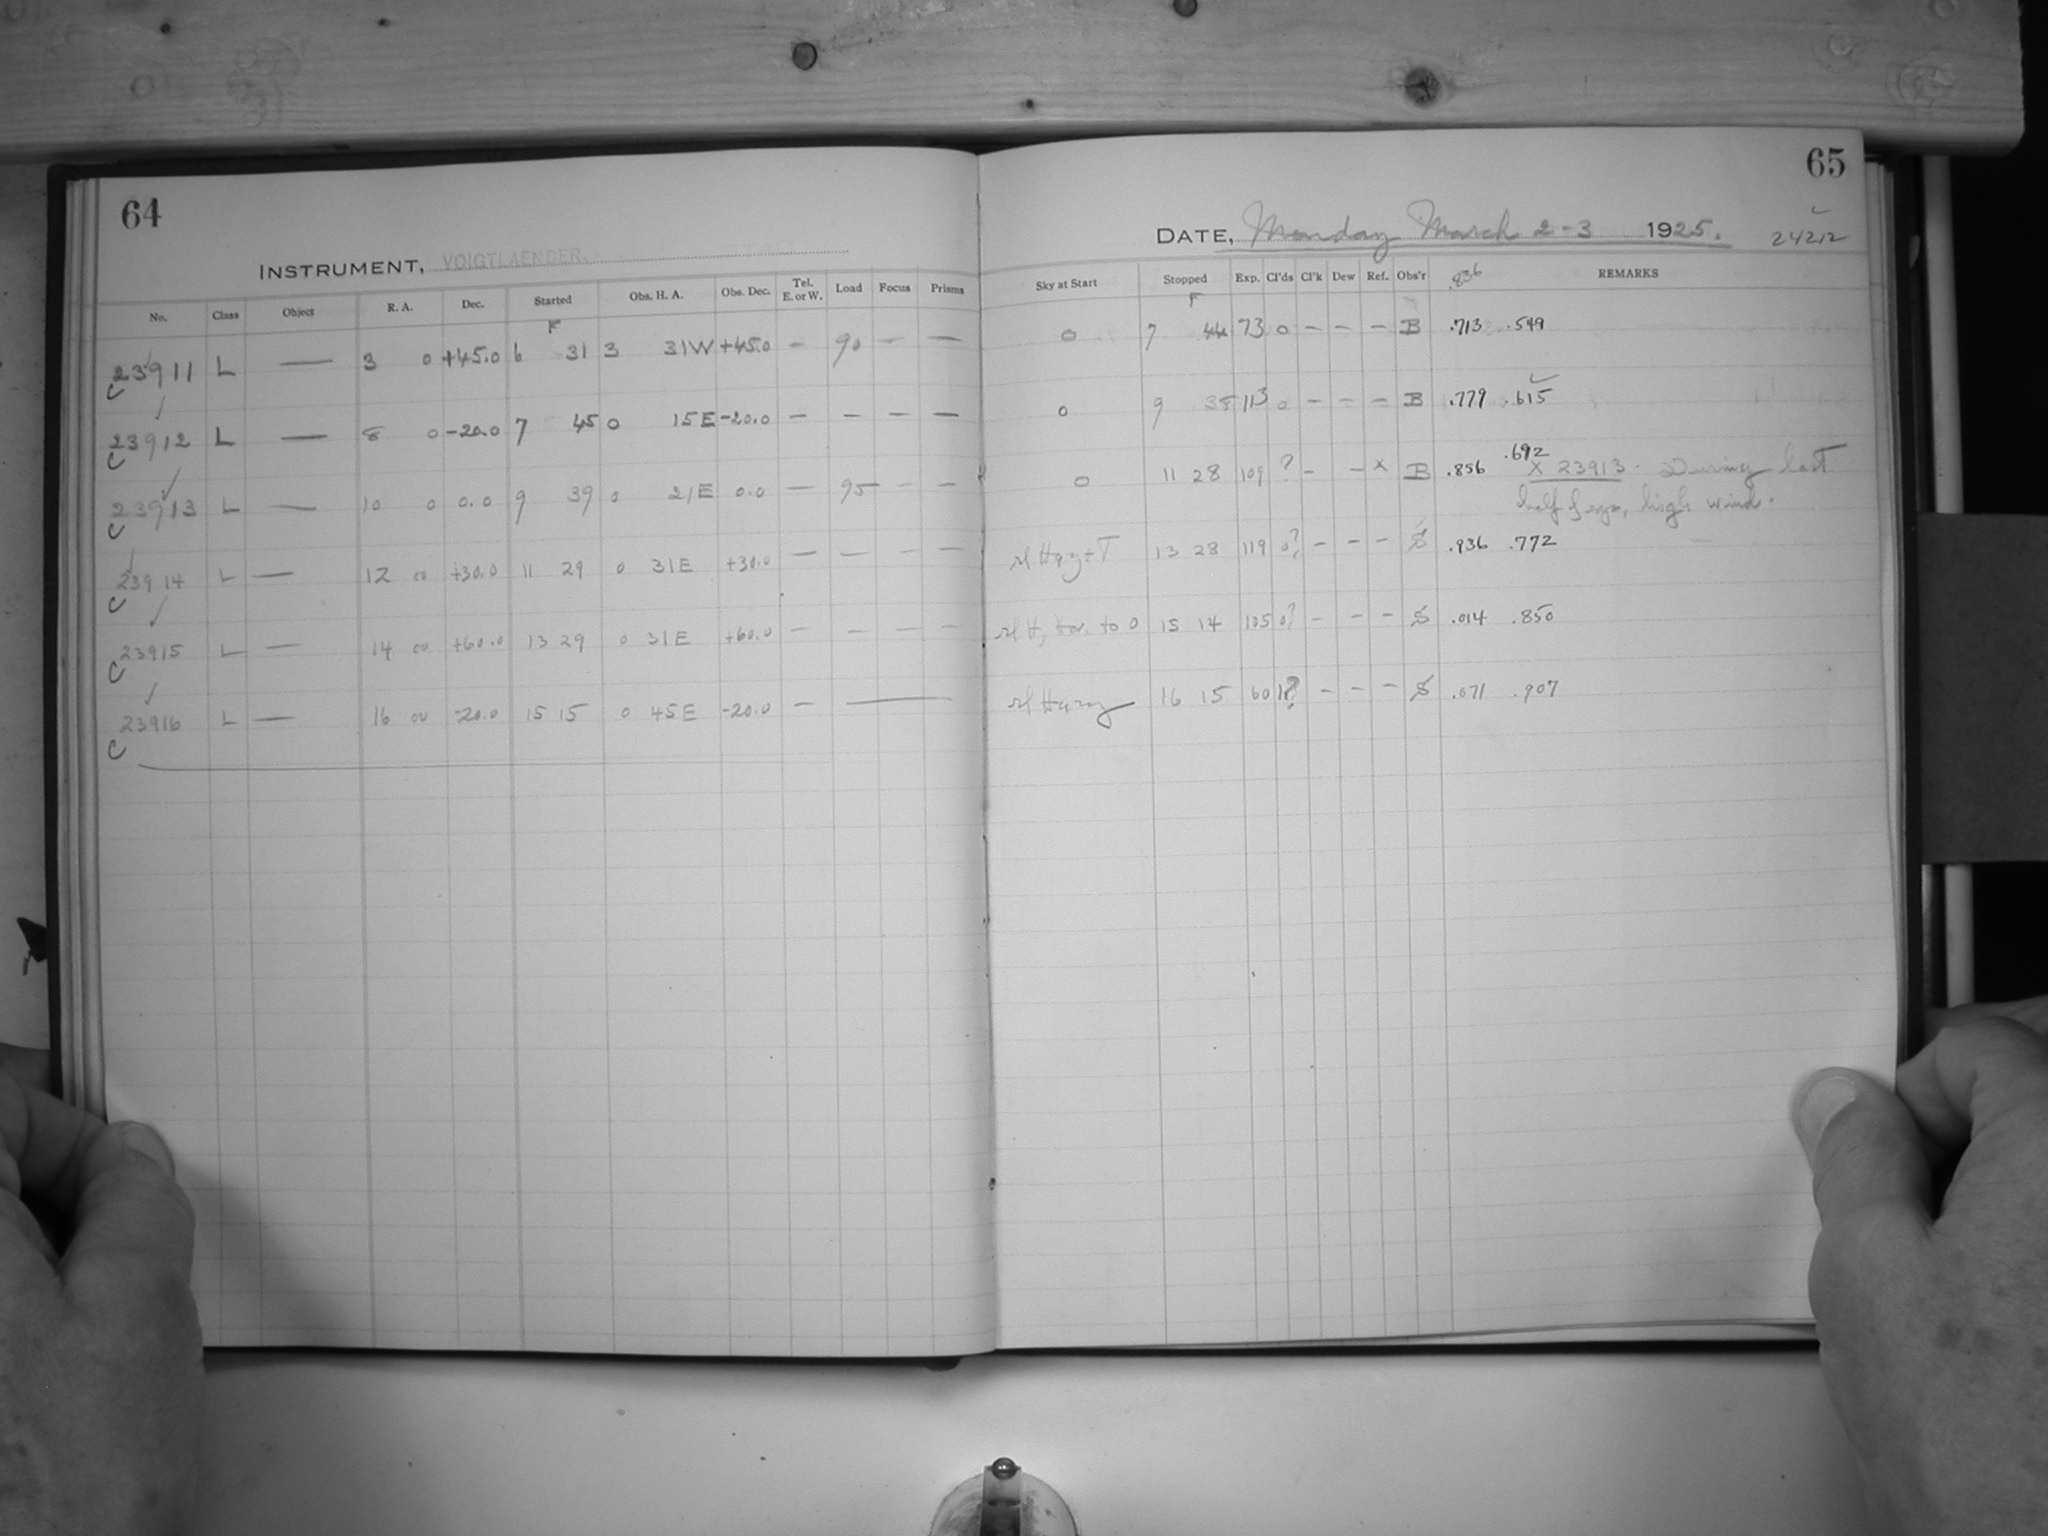 64
INSTRUMENT, VOIGTLAENDER.
No. Class Object R. A. Dec. Started Obs. H. A. Obs. Dec. Tel. E. or W. Load Focus Prisms
F
23911 L — 3 0 +45.0 6 31 3 31W +45.0 — 90 — —
C
23912 L — 8 0 -20.0 7 45 0 15E -20.0 — — — —
C
23913 L — 10 0 0.0 9 39 0 21E 0.0 — 95 — —
C
23914 L — 12 00 +30.0 11 29 0 31E +30.0 — — — —
C
23915 L — 14 00 +60.0 13 29 0 31E +60.0 — — — —
C
23916 L — 16 00 -20.0 15 15 0 45E -20.0 — —
C
65
DATE, Monday March 2-3 1925. 24212
Sky at Start Stopped Exp. Cl'ds Cl'k Dew Ref. Obs'r .836 REMARKS
F
0 7 44 73 0 — — — B .713 .549
0 9 38 113 0 — — — B .779 .615
0 11 28 109 ? — — x B .856 .692 X 23913. During last
half of exp, high wind.
13 28 119 0? — — — S .936 .772
to 0 15 14 105 0? — — — S .014 .850
sl Hazy 16 15 60 1? — — — S .071 .907